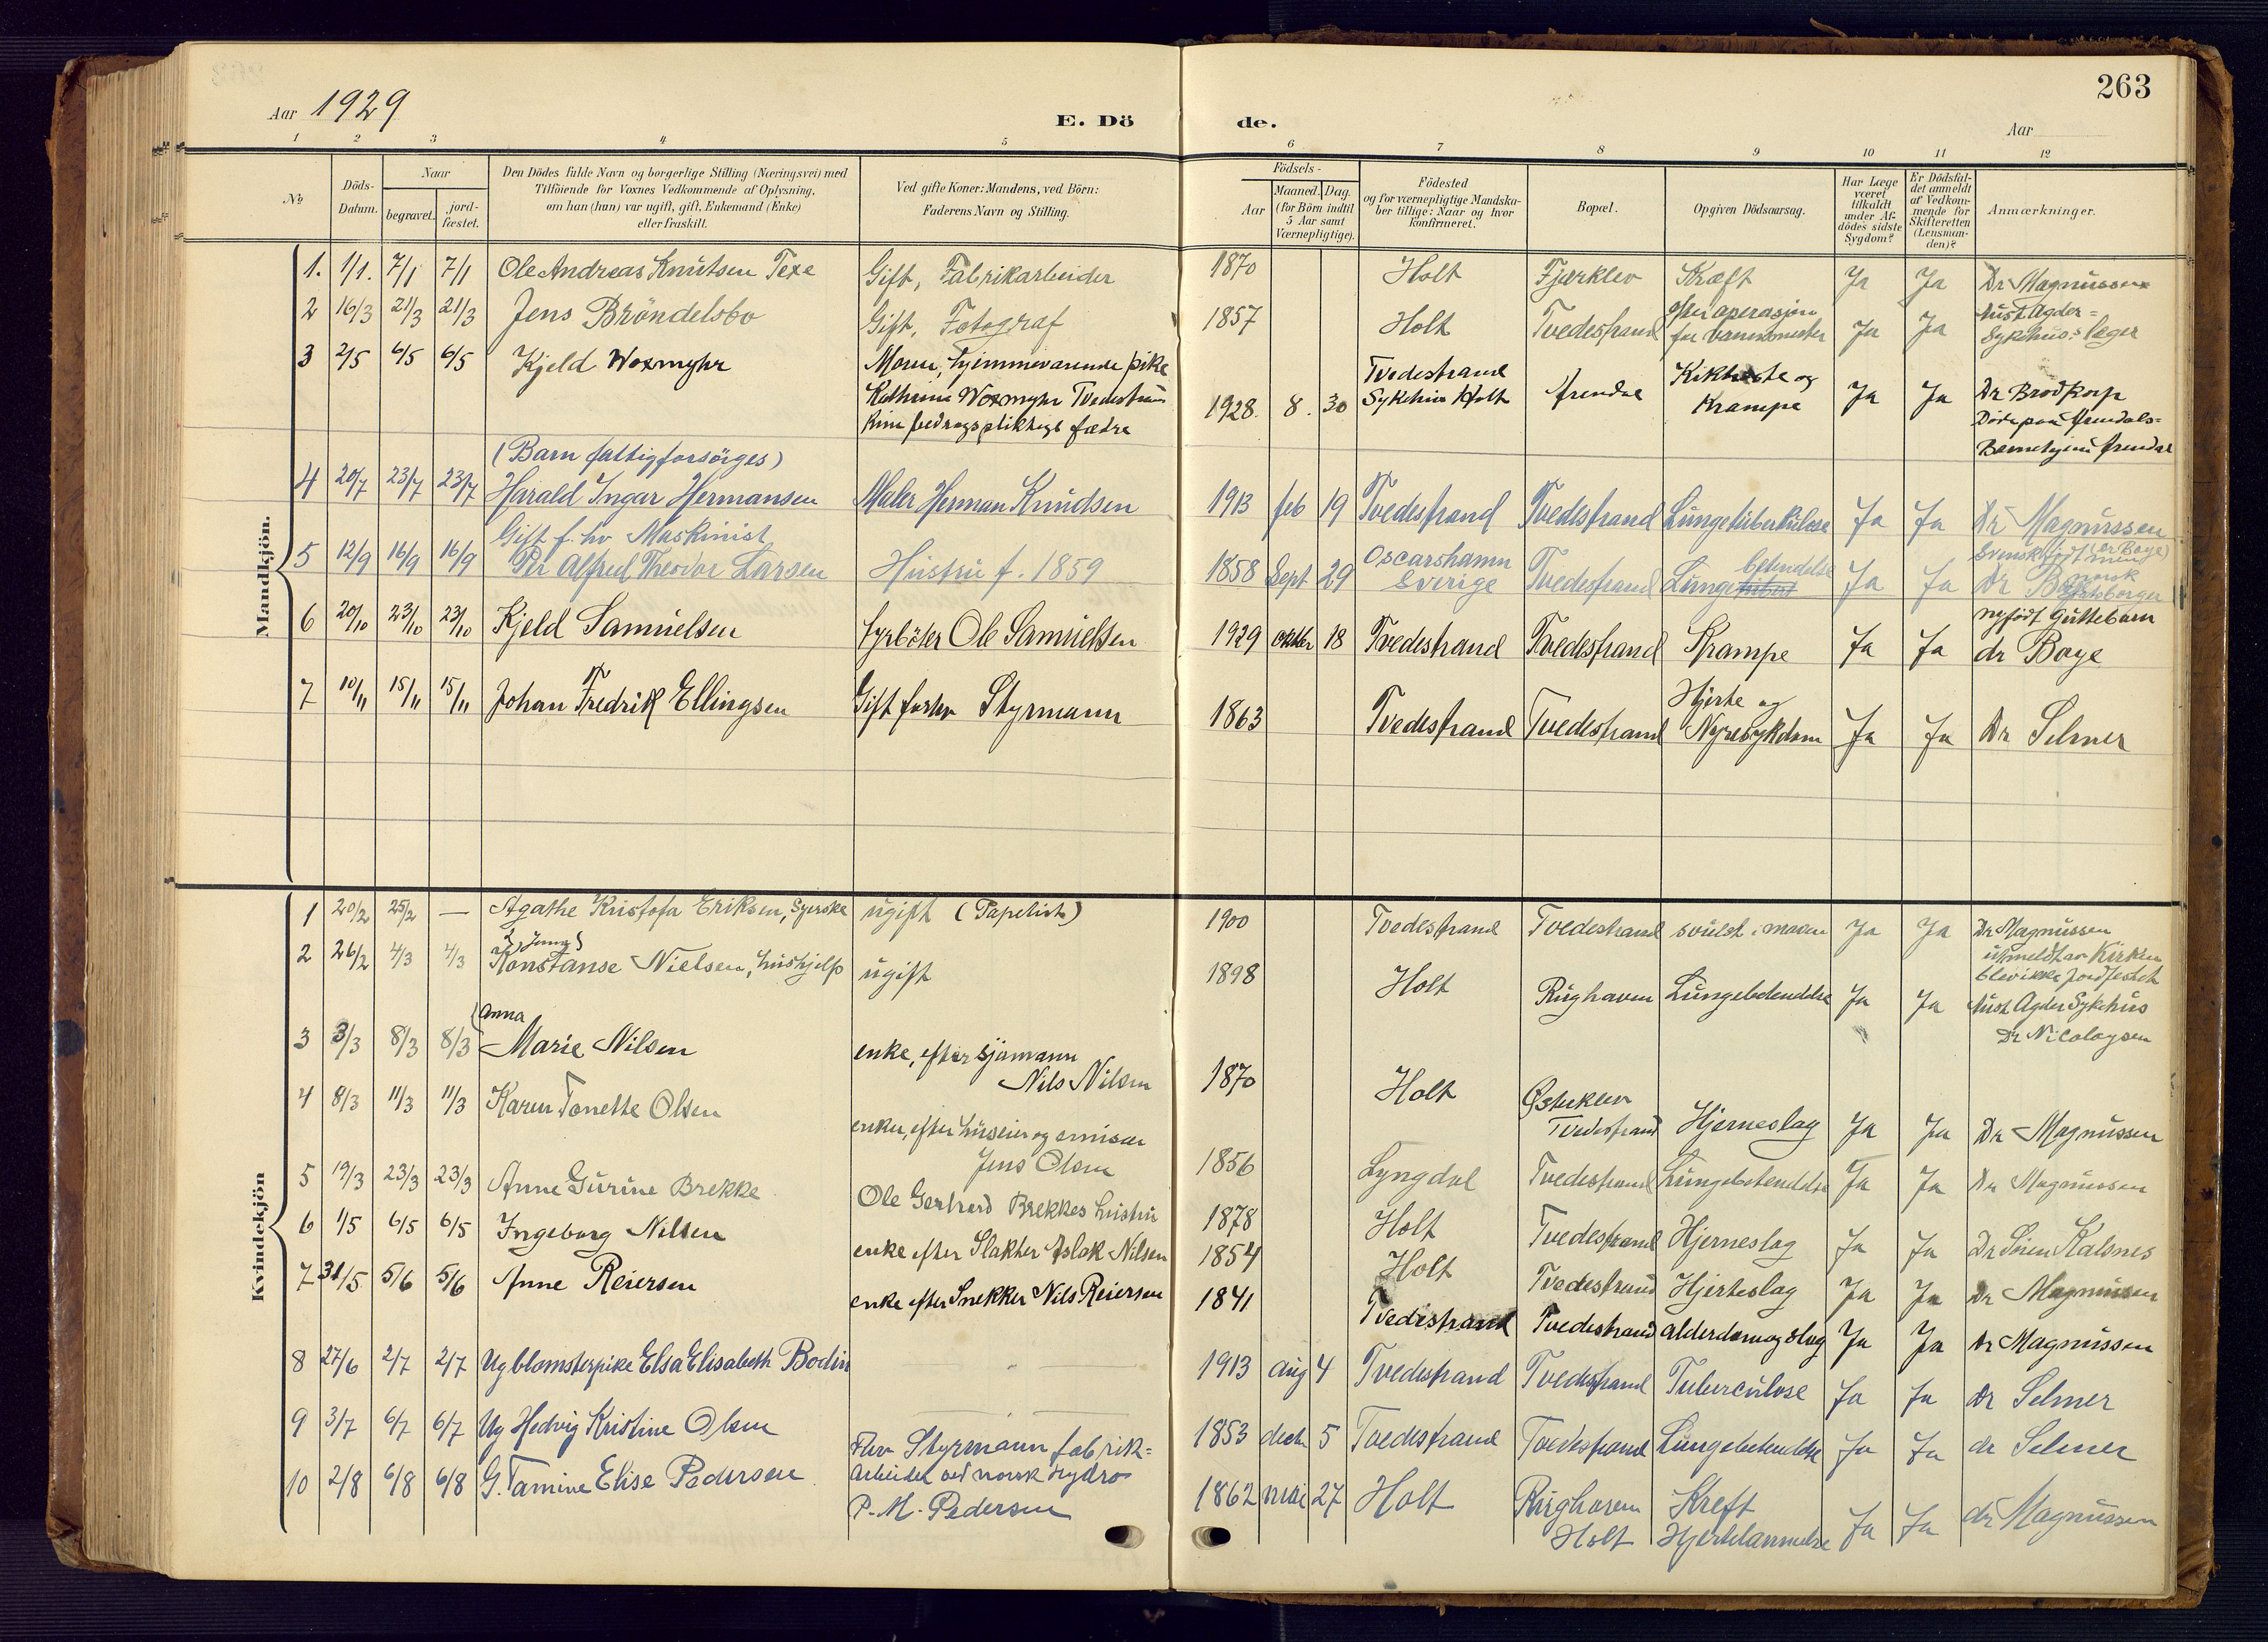 Aar 1929
E. Dö
de.
263
Aar
1 2 3 4 5 6 7 8 9 10 11 12
No
Döds-Datum.
Naar
begravet.
jord-fæstet.
Den Dödes fulde Navn og borgerlige Stilling (Næringsvei) med
Tilföiende for Voxnes Vedkommende af Oplysning,
om han (hun) var ugift, gift, Enkemand (Enke)
eller fraskilt.
Ved gifte Koner: Mandens, ved Börn:
Faderens Navn og Stilling.
Födsels-
Aar
Maaned. Dag.
(for Börn indtil
5 Aar samt
Værnepligtige).
Födested
og for værnepligtige Mandska-
ber tillige: Naar og hvor
konfirmeret.
Bopæl.
Opgiven Dödsaarsag.
Har Læge
været
tilkaldt
under Af-
dödes sidste
Sygdom?
Er Dödsfal-
det anmeldt
af Vedkom-
mende for
Skifteretten
(Lensman-
den)?
Anmærkninger.
Mandkjön.
1. 1/1. 7/1 7/1 Ole Andreas Knutsen Texe Gift, Fabrikarbeider 1870 Holt Fjærklev Kræft Ja Ja Dr Magnussen
2 16/3 21/3 21/3 Jens Bröndelsbo Gift, Fotograf 1857 Holt Tvedestrand efter operasjon
for Ja Ja Aust Agder=
Sykehus: læger
3 2/5 6/5 6/5 Kjeld Woxmyhr Moren, hjemmeværende pike
Kathrine Woxmyhr Tvedestrand
bidragspliktige fædre
1928. 8. 30 Tvedestrand
Sykehus Holt Arendal Kikhoste og
Krampe Ja Ja Dr Brodkorp
Döde paa Arendals=
Barnehjem Arendal
(Barn fattigforsörges)
4 20/7 23/7 23/7 Harald Ingar Hermansen Maler Herman Knudsen 1913 feb 19 Tvedestrand Tvedestrand Lungetuberkulose Ja Ja Dr Magnussen
Gift f. hv Maskinist
5 12/9 16/9 16/9 Per Alfred Theodor Larsen Hustru f. 1859 1858 Sept 29 Oscarshamn
Sverige Tvedestrand Lungebetendelse Ja Ja Svensk födt men
norsk
Statsborger
(dr Boye)
6 20/10 23/10 23/10 Kjeld Samuelsen Fyrböter Ole Samuelsen 1929 oktbr 18 Tvedestrand Tvedestrand Krampe Ja Ja nyfödt Guttebarn
dr Boye
7 10/11 15/11 15/11 Johan Fredrik Ellingsen Gift forhv Styrmann 1863 Tvedestrand Tvedestrand Hjerte og
Nyresykdom Ja Ja Dr Selmer
Kvindekjön
1 20/2 25/2 — Agathe Kristofa Eriksen, Syerske ugift (Papetist) 1900 Tvedestrand Tvedestrand svulst i maven Ja Ja Dr Magnussen
utmeldt av Kirken
blev ikke jordfestet
2 26/2 4/3 4/3 Konstanse Nielsen, hushjelp ugift 1898 Holt Rughaven Lungebetendelse Ja Ja Aust Agder Sykehus
Dr Nicolaysen
3 3/3 8/3 8/3 (Anna
Marie Nilsen enke, efter sjømann
Nils Nilsen 1870 Holt Østerklev
Tvedestrand Hjerneslag Ja Ja Dr Magnussen
4 8/3 11/3 11/3 Karen Tonette Olsen enke, efter huseier og emisær
Jens Olsen 1856 Lyngdal Tvedestrand Lungebetendelse Ja Ja Dr Magnussen
5 19/3 23/3 23/3 Anne Gurine Brekke Ole Gerhard Brekkes hustru 1878 Holt Tvedestrand Hjerneslag Ja Ja Dr Sören Kalsnes
6 1/5 6/5 6/5 Ingeborg Nilsen enke efter Slakter Aslak Nilsen 1854 Holt Tvedestrand Hjerteslag Ja Ja Dr Magnussen
7 31/5 5/6 5/6 Anne Reiersen enke efter Snekker Nils Reiersen 1841 Tvedestrand Tvedestrand alderdom og slag Ja Ja Dr Magnussen
8 27/6 2/7 2/7 Ug blomsterpike Elsa Elisabeth Bodin 1913 aug 4 Tvedestrand Tvedestrand Tuberculose Ja Ja dr Selmer
9 3/7 6/7 6/7 Ug Hedvig Kristine Olsen 1853 decbr 5 Tvedestrand Tvedestrand Lungebetendelse Ja Ja dr Selmer
10 2/8 6/8 6/8 G. Tamine Elise Pedersen Fhv Styrmann fabrik=
arbeider ved norsk Hydro
P. M. Pedersen 1862 mai 27 Holt Rughaven
Holt Kreft
Hjertelammelse Ja Ja dr Magnussen